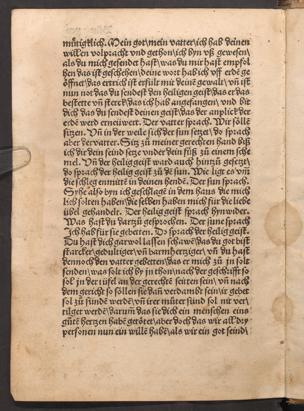 mütigklich. Mein got/ mein vatter/ ich hab deinen
willen volpracht vnd gethon/ ich byn vß gewesen/
als du mich gesendet hast/ was du mir hast empfol
hen das ist geschehen/ deine wort hab ich vff erdē ge
öffnet/ das ertrich ist erfült mit deine gewalt/ vñ ist
nun not das du sendest den heiligen geist/ das er das
bestette vñ sterck/ das ich hab angefangen/ vnd bit
dich das du sendest deinen geist/ das der anplick der
erdē werd erneiwert. Der vatter sprach. Wir söllē
sitzen. Vñ in der weile sich der sun setzet/ do sprach
aber der vatter. Sitz zů meiner gerechten hand biß
ich dir dein feind setze vnder dein füß zů einem sche
mel. Vñ der heilig geist ward auch hintzů gesetzt/
do sprach der heilig geist zů dē sun. Wie ligt es vm̄
die schleg enmitte in deinen hendē. Der sun sprach.
Syhe also byn ich geschlagē in dem hauß die mich
lieb solten haben/ die selben haben mich für die liebe
übel gehandelt. Der heilig geist sprach hynwider.
Was hast du darzů gesprochen. Der sune sprach
Ich hab für sie gebetten. Do sprach der heilig geist.
Du hast dich gar wol lassen schawē/ das du got bist
starcker/ gedultiger/ vñ barmhertziger/ vñ du hast
dennoch den vatter gebetten/ das er mich zů in solt
senden/ was solt ich by in thon/ nach der geschrifft so
sol in der tüfel an der gerechtē seitten sein/ vñ nach
dem gericht so söllen sie dañ verdampt sein/ ir gebet
sol zů sündē werdē/ vñ irer můter sünd sol nit ver/
tilget werdē/ darum̄ das sie dich ein menschen eins
gůtē hertzen habē getötet/ aber doch das wir all dry
personen nun ein wille habē/ als wir ein got seind/